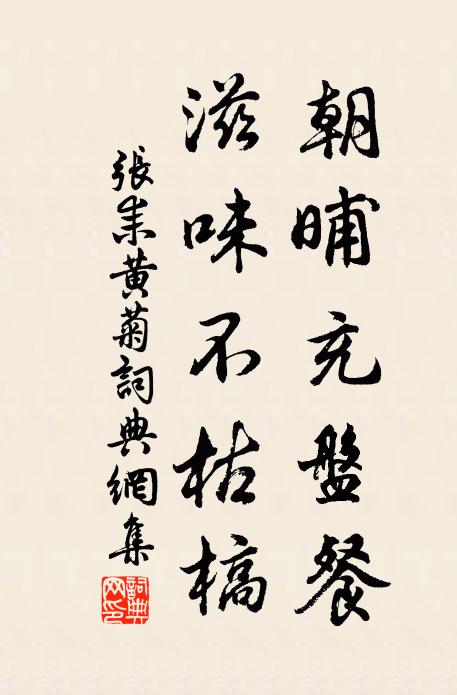 朝晡充盤餐
滋味不枯槁
張耒黃菊詞典網集
詞典網印